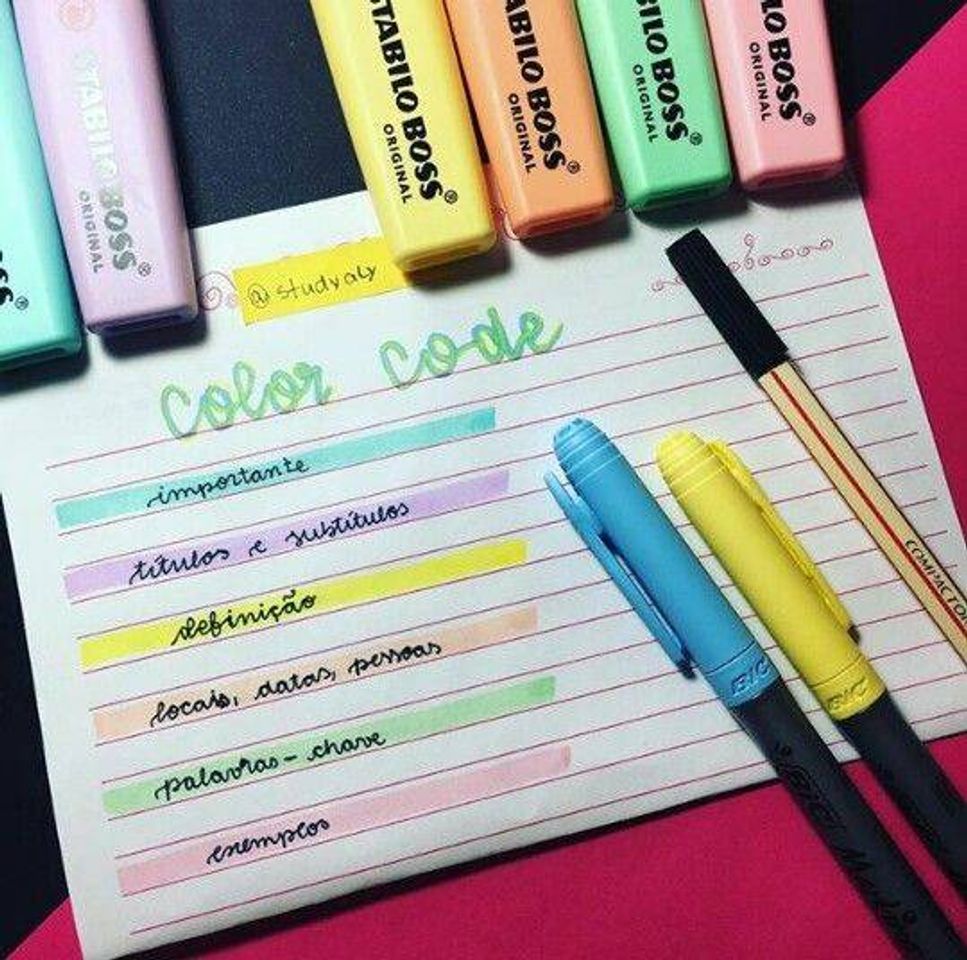 STABILO BOSS®
ORIGINAL
STABILO BOSS®
ORIGINAL
ABILO BOSS®
ORIGINAL
ILO BOSS®
ORIGINAL
LO BOSS®
ORIGINAL
SS®
@studyaly
color code
importante
títulos e subtítulos
definição
locais, datas, pessoas
palavras-chave
exemplos
BIC
BIC
COMPACTOR
BIC